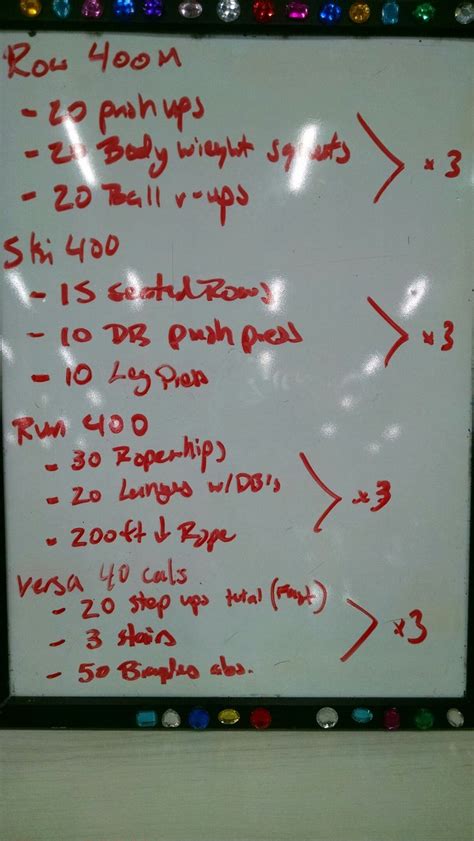 Row 400M
- 20 push ups
- 20 Body wieght squats
- 20 Ball v-ups
> x 3
Ski 400
- 15 seated Rows
- 10 DB push press
- 10 Leg Press
> x 3
Run 400
- 30 Ropewhips
- 20 Lunges w/DB's
- 200ft ↓ Rope
> x 3
Versa 40 cals
- 20 step ups total (Fast)
- 3 stairs
- 50 abs.
> x3